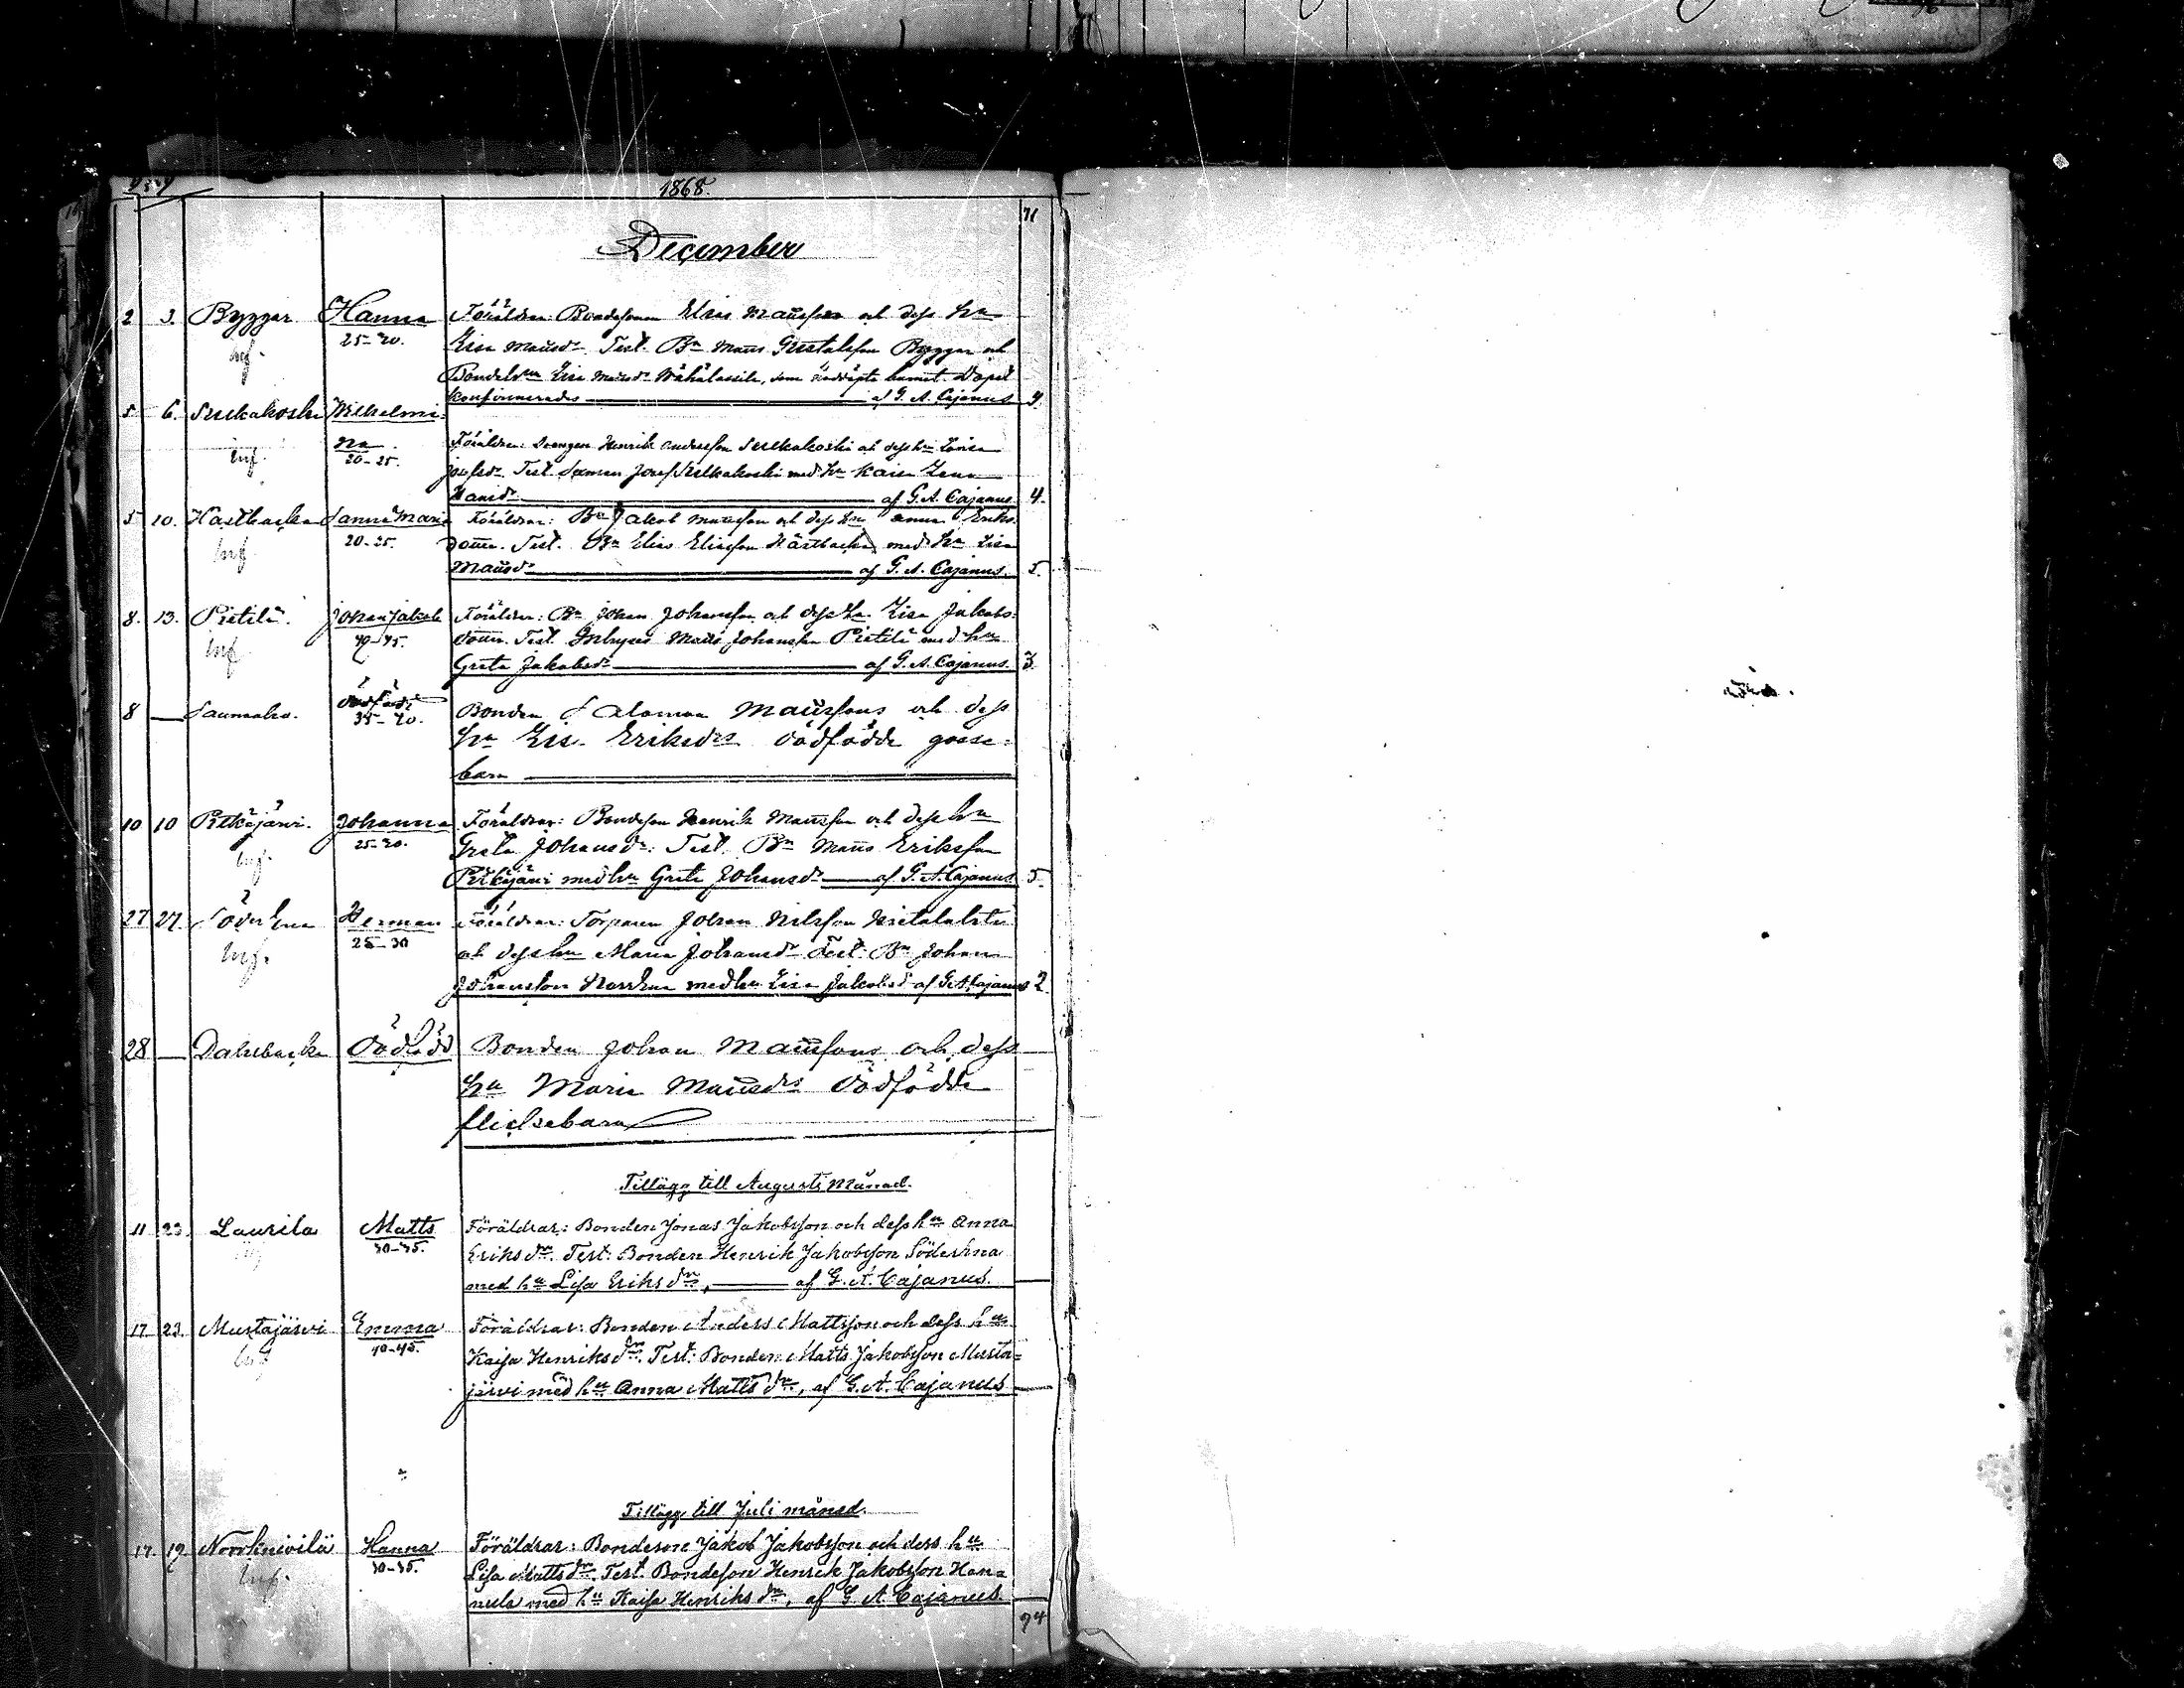 1868.
71
December
2 3. Byggar Hanna Föräldrar: Bondesonen Elias Mattsson och dess hu
inf. 25-30. Lisa Mattsdr. Test. Bn Matts Gustafsson Byggar och
Bondehun Lisa Mattsdr Wähälassila, som nöddöpte barnet. Dopet
konfirmerades af G. A. Cajanus 4.
5 6. Seelkakoski Wilhelmi-
inf. na Föräldrar: Svengen Henrik Andersson Seelkakoski och dess hu Lovisa
20-25. Josefsdr. Test. Josef Seelkakoski med hu Kaisa Lena
Hansdr af G. A. Cajanus 4.
5 10. Hastbacka Sanna Maria Föräldrar: Bn Jakob Mattsson och dess hu Anna Eriks-
inf. 20-25. dotter. Test. Bn Elias Eliasson Hästbacka med hu Lisa
Mattsdr af G. A. Cajanus. 5.
8. 13. Pietilä. Johan Jakob Föräldrar: Bn Johan Johansson och dess hu Lisa Jakobs-
inf. 40-45. dotter. Test. Inhyses Matts Johansson Pietilä med hu
Greta Jakobsdr af G. A. Cajanus. 3.
8 — Saunaho. Dödfödt Bonden Salomon Mattssons och dess
35-40. hu Lisa Eriksdrs dödfödde gosse-
barn
10 10 Pitkäjärvi. Johanna Föräldrar: Bondeson Henrik Mattsson och dess hu
inf. 25-30. Greta Johansdr. Test. Bn Matts Eriksson
Pitkäjärvi med hu Greta Johansdr af G. A. Cajanus 5.
27 27. Söderkna Herman Föräldrar: Torparen Johan Nilsson Hietalahti
inf. 25-30 och dess hu Maria Johansdr Test: Bn Johan
Johansson Norrkna med hu Lisa Jakobsd af G. A. Cajanus 2.
28 — Dahlbacka Dödfödd Bonden Johan Mattssons och dess
hu Maria Mattsdrs dödfödde
flickebarn
Tillägg till Augusti Månad.
11 23. Laurila Matts Föräldrar: Bonden Jonas Jakobsson och dess hu Anna
30-35. Eriksdr. Test: Bonden Henrik Jakobsson Söderkna
med hu Lisa Eriksdr, af G. A. Cajanus.
17 23. Mustajärvi Emma Föräldrar: Bonden Anders Mattsson och dess hu
inf. 40-45. Kaisa Henriksdr. Test: Bonden Matts Jakobsson Musta-
järvi med hu Anna Mattsdr, af G. A. Cajanus
Tillägg till Juli månad.
17. 19. Norrkniivilä Hanna Föräldrar: Bondeson Jakob Jakobsson och dess hu
inf. 30-35. Lisa Mattsdr. Test. Bondeson Henrik Jakobsson Han-
nula med hu Kaisa Henriksdr, af G. A. Cajanus.
94